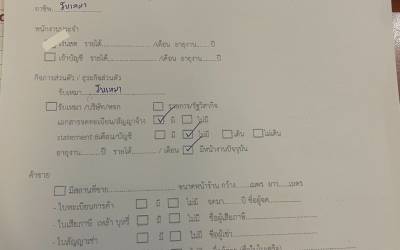 อาชีพ.. รับเหมา
พนักงานประจำ
รายได้............../เดือน อายุงาน......ปี
☐ เข้าบัญชี รายได้............../เดือน อายุงาน......ปี
กิจการส่วนตัว / ธุรกิจส่วนตัว
รับเหมา......รับเหมา
☐ รับเหมา /บริษัท/หจก ☐ ราชการ/รัฐวิสาหกิจ
เอกสารจดทะเบียน/สัญญาจ้าง ☑ มี ☐ ไม่มี
statement 6เดือน/บัญชี ☐ มี ☑ ไม่มี ☐ เดิน ☐ ไม่เดิน
อายุงาน........ปี รายได้............../ เดือน ☑ มีหน้างานปัจจุบัน
ค้าขาย
☐ มีสถานที่ขาย.................ขนาดหน้าร้าน กว้าง......เมตร ยาว......เมตร
- ใบทะเบียนการค้า ☐ มี ☐ ไม่มี จดมา......ปี ชื่อผู้จด
- ใบเสียภาษี เหล้า บุหรี่ ☐ มี ☐ ไม่มี ชื่อผู้เสียภาษี
- ใบสัญญาเช่า ☐ มี ☐ ไม่มี